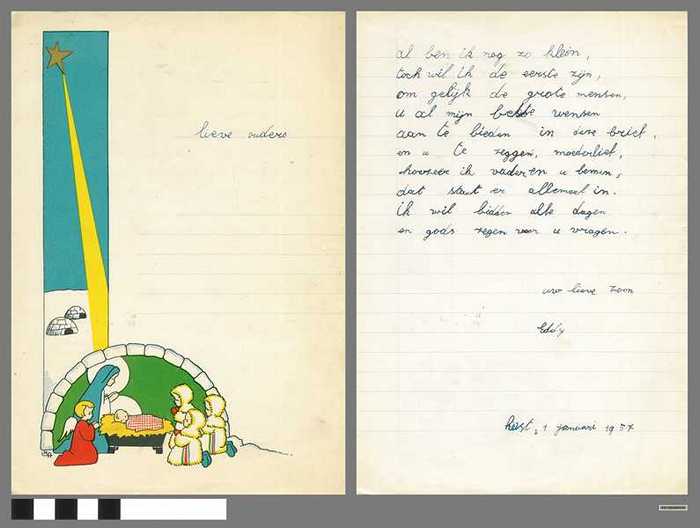 lieve ouders
al ben ik nog zo klein,
toch wil ik de eerste zijn,
om gelijk de grote mensen,
u al mijn beste wensen
aan te bieden in deze brief,
en u te zeggen, moederlief,
hoezeer ik vader en u bemin,
dat staat er allemaal in.
ik wil bidden alle dagen
en gods zegen voor u vragen.
uw lieve zoon
Eddy
1 januari 1957